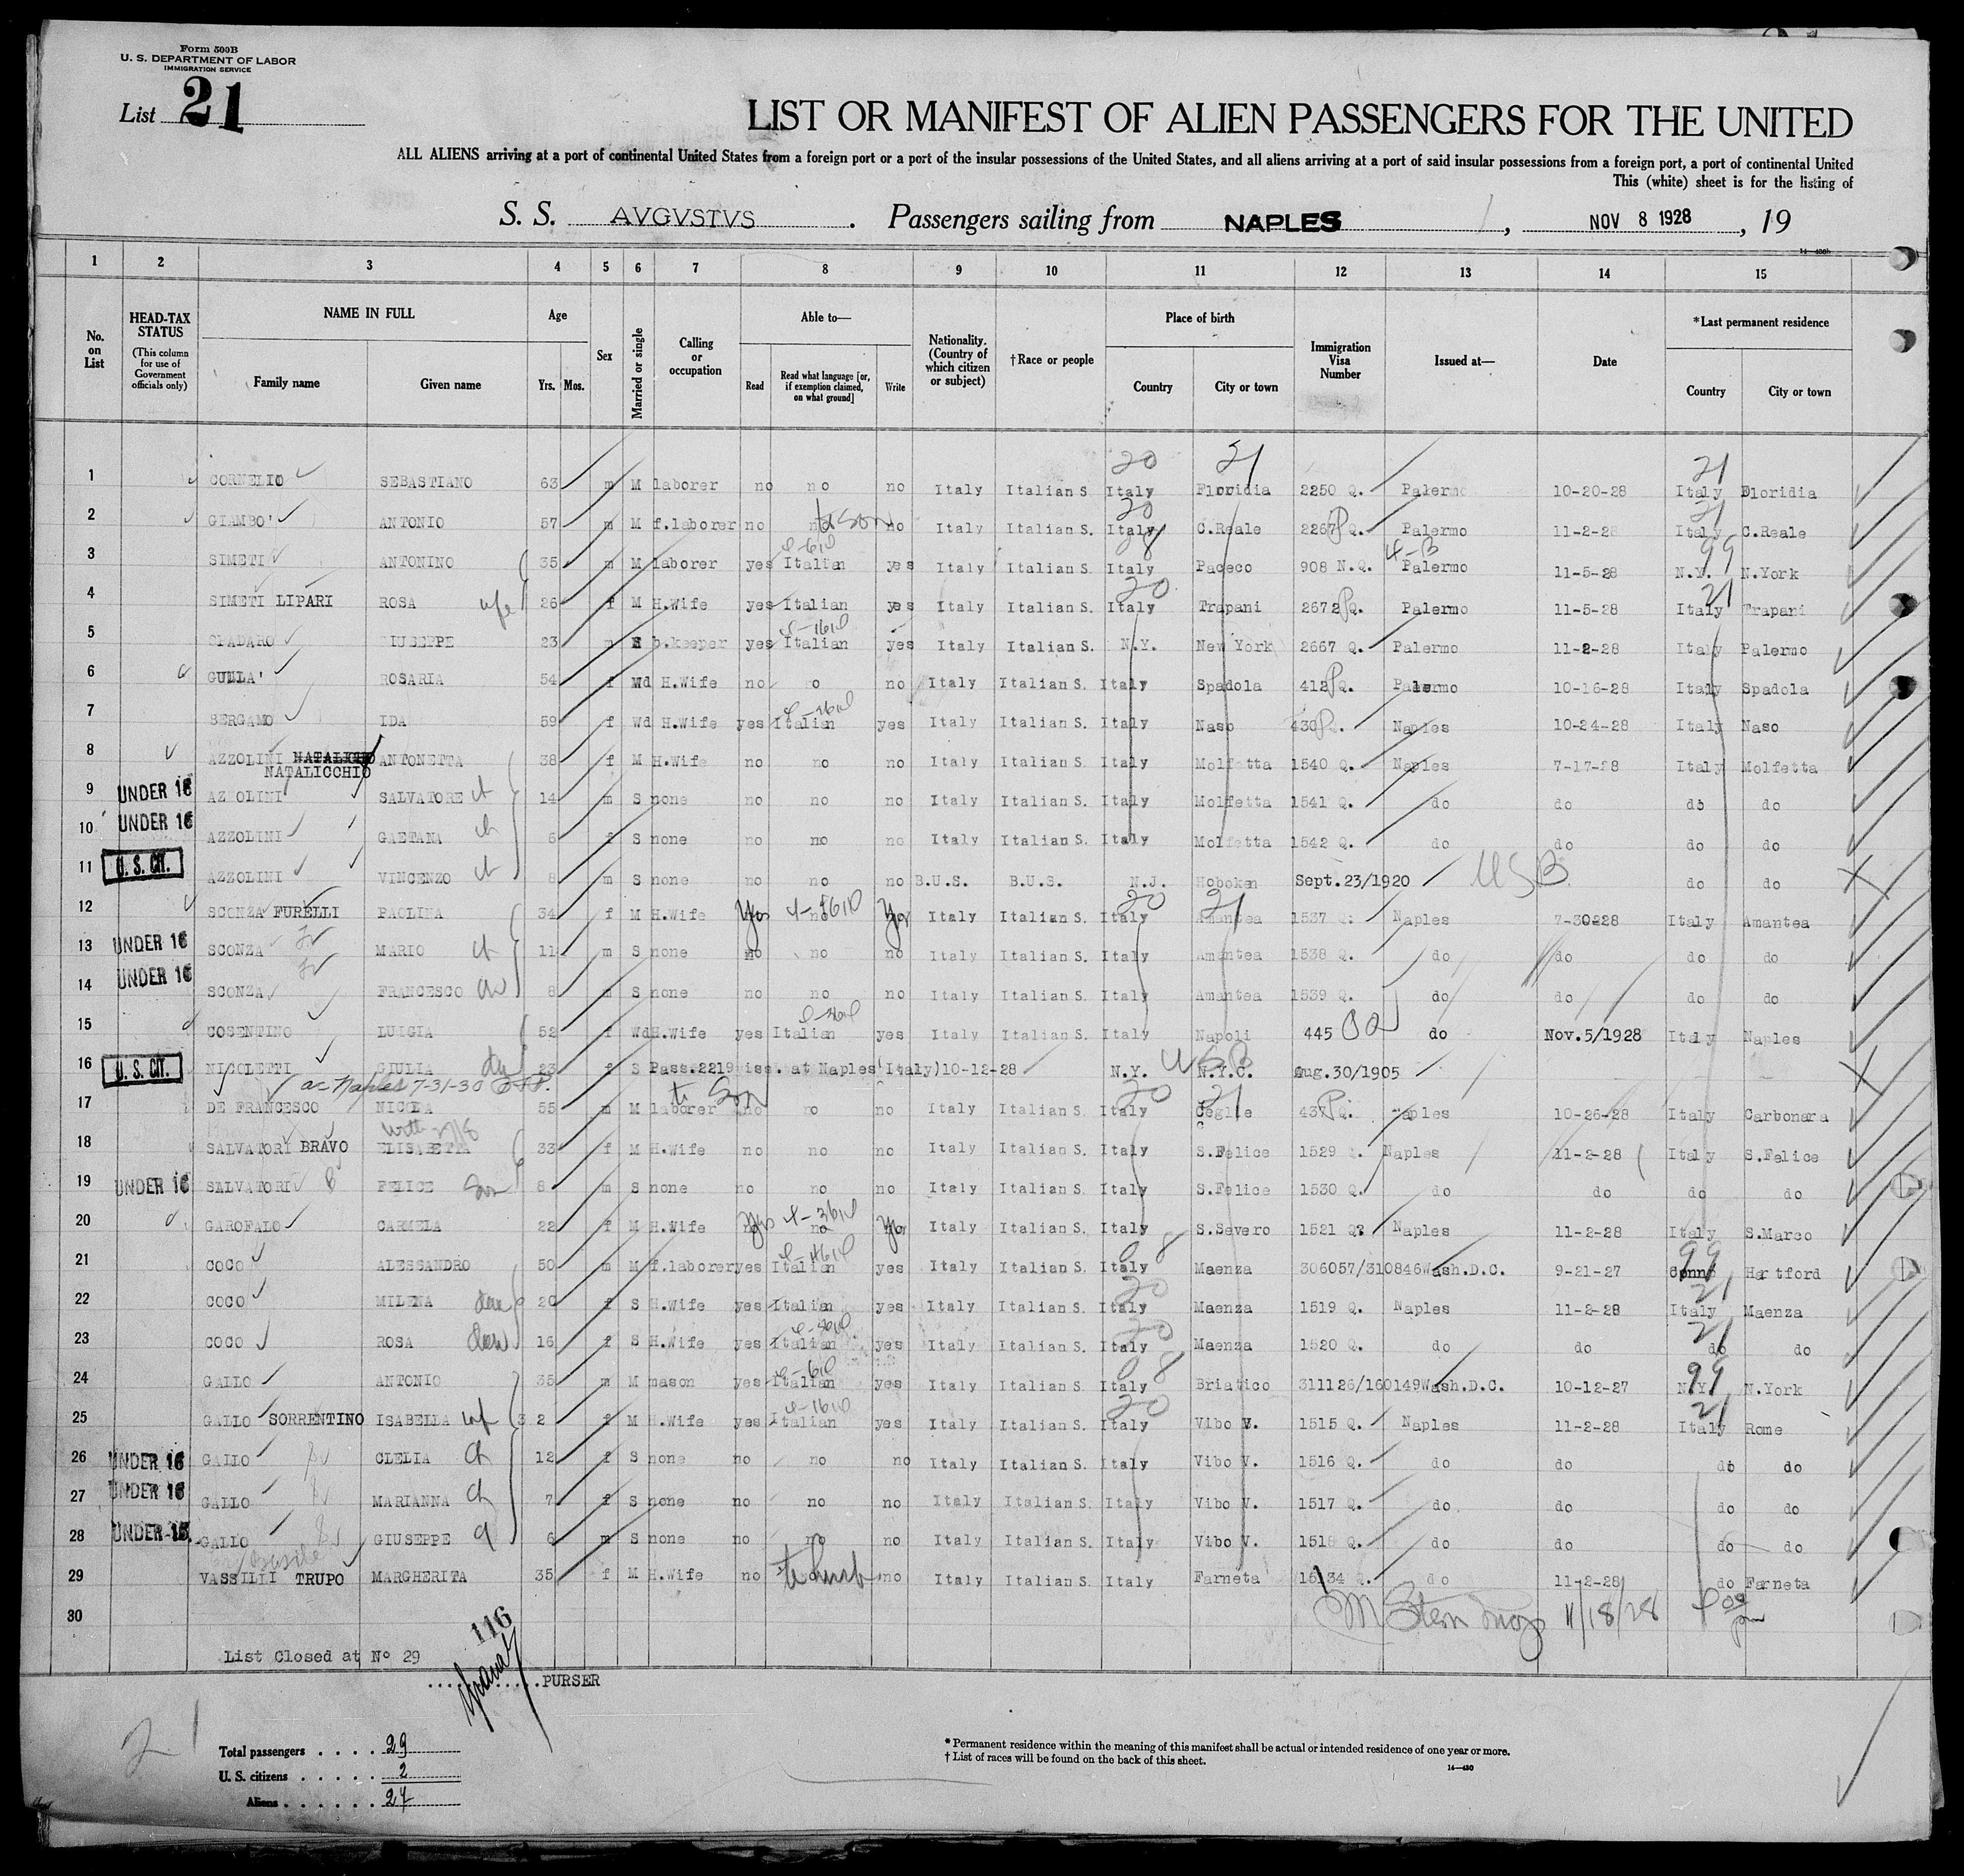 Form 500B
U. S. DEPARTMENT OF LABOR
IMMIGRATION SERVICE
List 21
LIST OR MANIFEST OF ALIEN PASSENGERS FOR THE UNITED
ALL ALIENS arriving at a port of continental United States from a foreign port or a port of the insular possessions of the United States, and all aliens arriving at a port of said insular possessions from a foreign port, a port of continental United
This (white) sheet is for the listing of
S. S. AVGVSTVS . Passengers sailing from NAPLES , NOV 8 1928 , 19
1 2 3 4 5 6 7 8 9 10 11 12 13 14 15
No. on List HEAD-TAX STATUS (This column for use of Government officials only) NAME IN FULL Family name Given name Age Yrs. Mos. Sex Married or single Calling or occupation Able to— Read Read what language [or, if exemption claimed, on what ground] Write Nationality. (Country of which citizen or subject) †Race or people Place of birth Country City or town Immigration Visa Number Issued at— Date *Last permanent residence Country City or town
20 21 21
1 CORNELIO SEBASTIANO 63 m M laborer no no no Italy Italian S. Italy Floridia 2250 Q. Palermo 10-20-28 Italy Floridia
2 GIAMBO' ANTONIO 57 m M f.laborer no no to son no Italy Italian S. Italy C.Reale 2267 Q. Palermo 11-2-28 Italy C.Reale
3 SIMETI ANTONINO 35 m M laborer yes Italian yes Italy Italian S. Italy Paceco 908 N.Q. 4-B Palermo 11-5-28 N.Y. N.York
4 SIMETI LIPARI ROSA wife 26 f M H.Wife yes Italian yes Italy Italian S. Italy Trapani 2672 Q. Palermo 11-5-28 Italy Trapani
5 SPADARO GIUSEPPE 23 m S b.keeper yes Italian yes Italy Italian S. N.Y. New York 2667 Q. Palermo 11-2-28 Italy Palermo
6 GULLA' ROSARIA 54 f Wd H.Wife no no no Italy Italian S. Italy Spadola 412 Q. Palermo 10-16-28 Italy Spadola
7 BERGAMO IDA 59 f Wd H.Wife yes Italian yes Italy Italian S. Italy Naso 430 Q. Naples 10-24-28 Italy Naso
8 AZZOLINI NATALICHO ANTONETTA 38 f M H.Wife no no no Italy Italian S. Italy Molfetta 1540 Q. Naples 7-17-28 Italy Molfetta
NATALICCHIO
9 UNDER 16 AZZOLINI SALVATORE ch 14 m S none no no no Italy Italian S. Italy Molfetta 1541 Q. do do do do
10 UNDER 16 AZZOLINI GAETANA ch 6 f S none no no no Italy Italian S. Italy Molfetta 1542 Q. do do do do
11 U. S. CIT. AZZOLINI VINCENZO ch 8 m S none no no no B.U.S. B.U.S. N.J. Hoboken Sept.23/1920 USB do do
12 SCONZA FURELLI PAOLINA 34 f M H.Wife Yes no Yes Italy Italian S. Italy Amantea 1537 Q. Naples 7-30-28 Italy Amantea
13 UNDER 16 SCONZA MARIO ch 11 m S none no no no Italy Italian S. Italy Amantea 1538 Q. do do do do
14 UNDER 16 SCONZA FRANCESCO ch 8 m S none no no no Italy Italian S. Italy Amantea 1539 Q. do do do do
15 COSENTINO LUIGIA 52 f Wd H.Wife yes Italian yes Italy Italian S. Italy Napoli 445 do Nov.5/1928 Italy Naples
16 U. S. CIT. NICOLETTI GIULIA 23 f S Pass.2219 iss. at Naples (Italy)10-12-28 N.Y. USB N.Y.C. Aug.30/1905
Naples 7-31-30
17 DE FRANCESCO NICOLA 55 m M laborer to Son no no no Italy Italian S. Italy Ceglie 437 Q. Naples 10-26-28 Italy Carbonara
18 SALVATORI BRAVO ELISABETTA 33 f M H.Wife no no no Italy Italian S. Italy S.Felice 1529 Q. Naples 11-2-28 Italy S.Felice
19 UNDER 16 SALVATORI B FELICE Son 8 m S none no no no Italy Italian S. Italy S.Felice 1530 Q. do do do do
20 GAROFALO CARMELA 22 f M H.Wife Yes no Yes Italy Italian S. Italy S.Severo 1521 Q. Naples 11-2-28 Italy S.Marco
21 COCO ALESSANDRO 50 m M f.laborer yes Italian yes Italy Italian S. Italy Maenza 306057/310846 Wash.D.C. 9-21-27 Conn Hartford
22 COCO MILENA dau 20 f S H.Wife yes Italian yes Italy Italian S. Italy Maenza 1519 Q. Naples 11-2-28 Italy Maenza
23 COCO ROSA dau 16 f S H.Wife yes Italian yes Italy Italian S. Italy Maenza 1520 Q. do do do do
24 GALLO ANTONIO 35 m M mason yes Italian yes Italy Italian S. Italy Briatico 311126/160149 Wash.D.C. 10-12-27 N.Y. N.York
25 GALLO SORRENTINO ISABELLA wf 32 f M H.Wife yes Italian yes Italy Italian S. Italy Vibo V. 1515 Q. Naples 11-2-28 Italy Rome
26 UNDER 16 GALLO CLELIA ch 12 f S none no no no Italy Italian S. Italy Vibo V. 1516 Q. do do do do
27 UNDER 16 GALLO MARIANNA ch 7 f S none no no no Italy Italian S. Italy Vibo V. 1517 Q. do do do do
28 UNDER 16 GALLO GIUSEPPE 6 m S none no no no Italy Italian S. Italy Vibo V. 1518 Q. do do do do
29 VASSILLI TRUPO MARGHERITA 35 f M H.Wife no to husb no Italy Italian S. Italy Farneta 1534 Q. do 11-2-28 do Farneta
30 M Stern Insp 11/18/28
116
List Closed at No 29
PURSER
21
Total passengers . . . . 29
U. S. citizens . . . . . 2
Aliens . . . . . . 27
* Permanent residence within the meaning of this manifest shall be actual or intended residence of one year or more.
† List of races will be found on the back of this sheet.
14—430